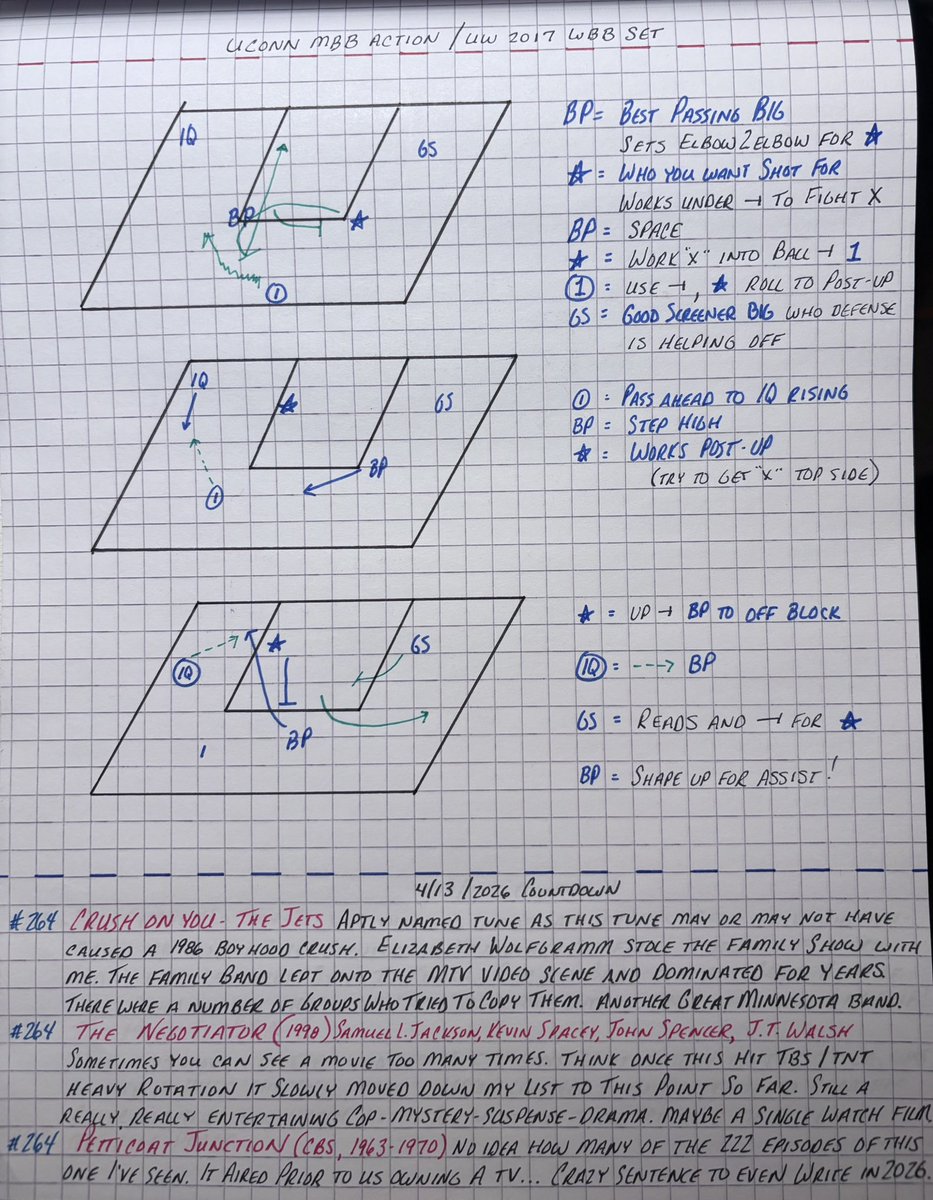 UCONN MBB ACTION / UW 2017 WBB SET
IQ
GS
BP
①
BP = BEST PASSING BIG
SETS ELBOW 2 ELBOW FOR ☆
☆ = WHO YOU WANT SHOT FOR
WORKS UNDER ⊣ TO FIGHT X
BP = SPACE
☆ = WORK "X" INTO BALL ⊣ 1
① = USE ⊣, ☆ ROLL TO POST-UP
GS = GOOD SCREENER BIG WHO DEFENSE
IS HELPING OFF
IQ
GS
BP
①
① = PASS AHEAD TO IQ RISING
BP = STEP HIGH
☆ = WORKS POST-UP
(TRY TO GET "X" TOP SIDE)
GS
IQ
BP
1
☆ = UP ⊣ BP TO OFF BLOCK
IQ = ---> BP
GS = READS AND ⊣ FOR ☆
BP = SHAPE UP FOR ASSIST!
4/13/2026 COUNTDOWN
#264 CRUSH ON YOU - THE JETS APTLY NAMED TUNE AS THIS TUNE MAY OR MAY NOT HAVE
CAUSED A 1986 BOYHOOD CRUSH. ELIZABETH WOLFGRAMM STOLE THE FAMILY SHOW WITH
ME. THE FAMILY BAND LEPT ONTO THE MTV VIDEO SCENE AND DOMINATED FOR YEARS.
THERE WERE A NUMBER OF GROUPS WHO TRIED TO COPY THEM. ANOTHER GREAT MINNESOTA BAND.
#264 THE NEGOTIATOR (1998) SAMUEL L. JACKSON, KEVIN SPACEY, JOHN SPENCER, J.T. WALSH
SOMETIMES YOU CAN SEE A MOVIE TOO MANY TIMES. THINK ONCE THIS HIT TBS/TNT
HEAVY ROTATION IT SLOWLY MOVED DOWN MY LIST TO THIS POINT SO FAR. STILL A
REALLY, REALLY ENTERTAINING COP-MYSTERY-SUSPENSE-DRAMA. MAYBE A SINGLE WATCH FILM
#264 PETTICOAT JUNCTION (CBS, 1963-1970) NO IDEA HOW MANY OF THE 222 EPISODES OF THIS
ONE I'VE SEEN. IT AIRED PRIOR TO US OWNING A TV... CRAZY SENTENCE TO EVEN WRITE IN 2026.